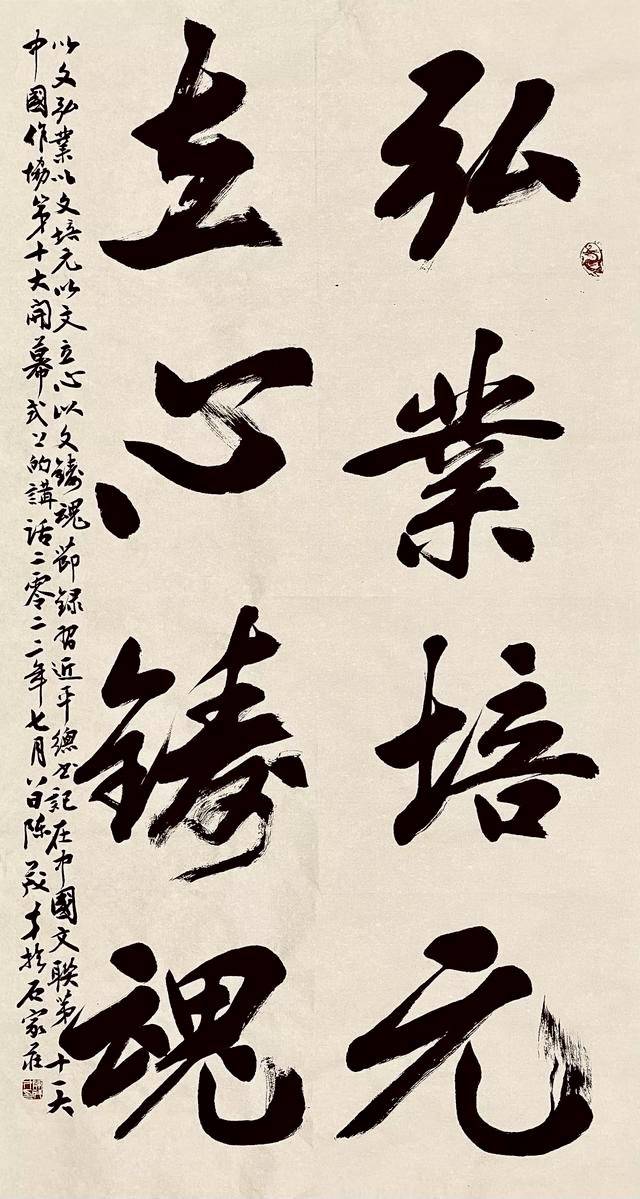 弘業培元
立心鑄魂
以文弘業以文培元以文立心以文鑄魂節録習近平總书記在中國文联第十一大
中國作協第十大開幕式上的講話二零二二年七月八日陈才於石家莊